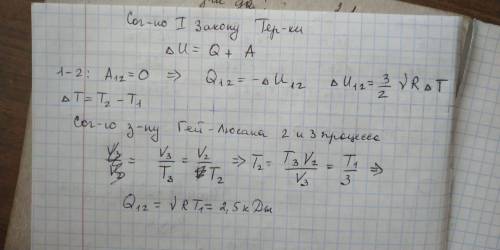 Сог-но I Закону Тер-ки
ΔU = Q + A
1-2: A₁₂=0 ⇒ Q₁₂ = -ΔU₁₂ ΔU₁₂ = 3/2 νRΔT
ΔT = T₂ - T₁
Сог-го з-ну Гей-Люсана 2 и 3 процесса
= V₃/T₃ = V₂/T₂ ⇒ T₂ = T₃V₂/V₃ = T₁/3 ⇒
Q₁₂ = νRT₁ = 2,5 кДж